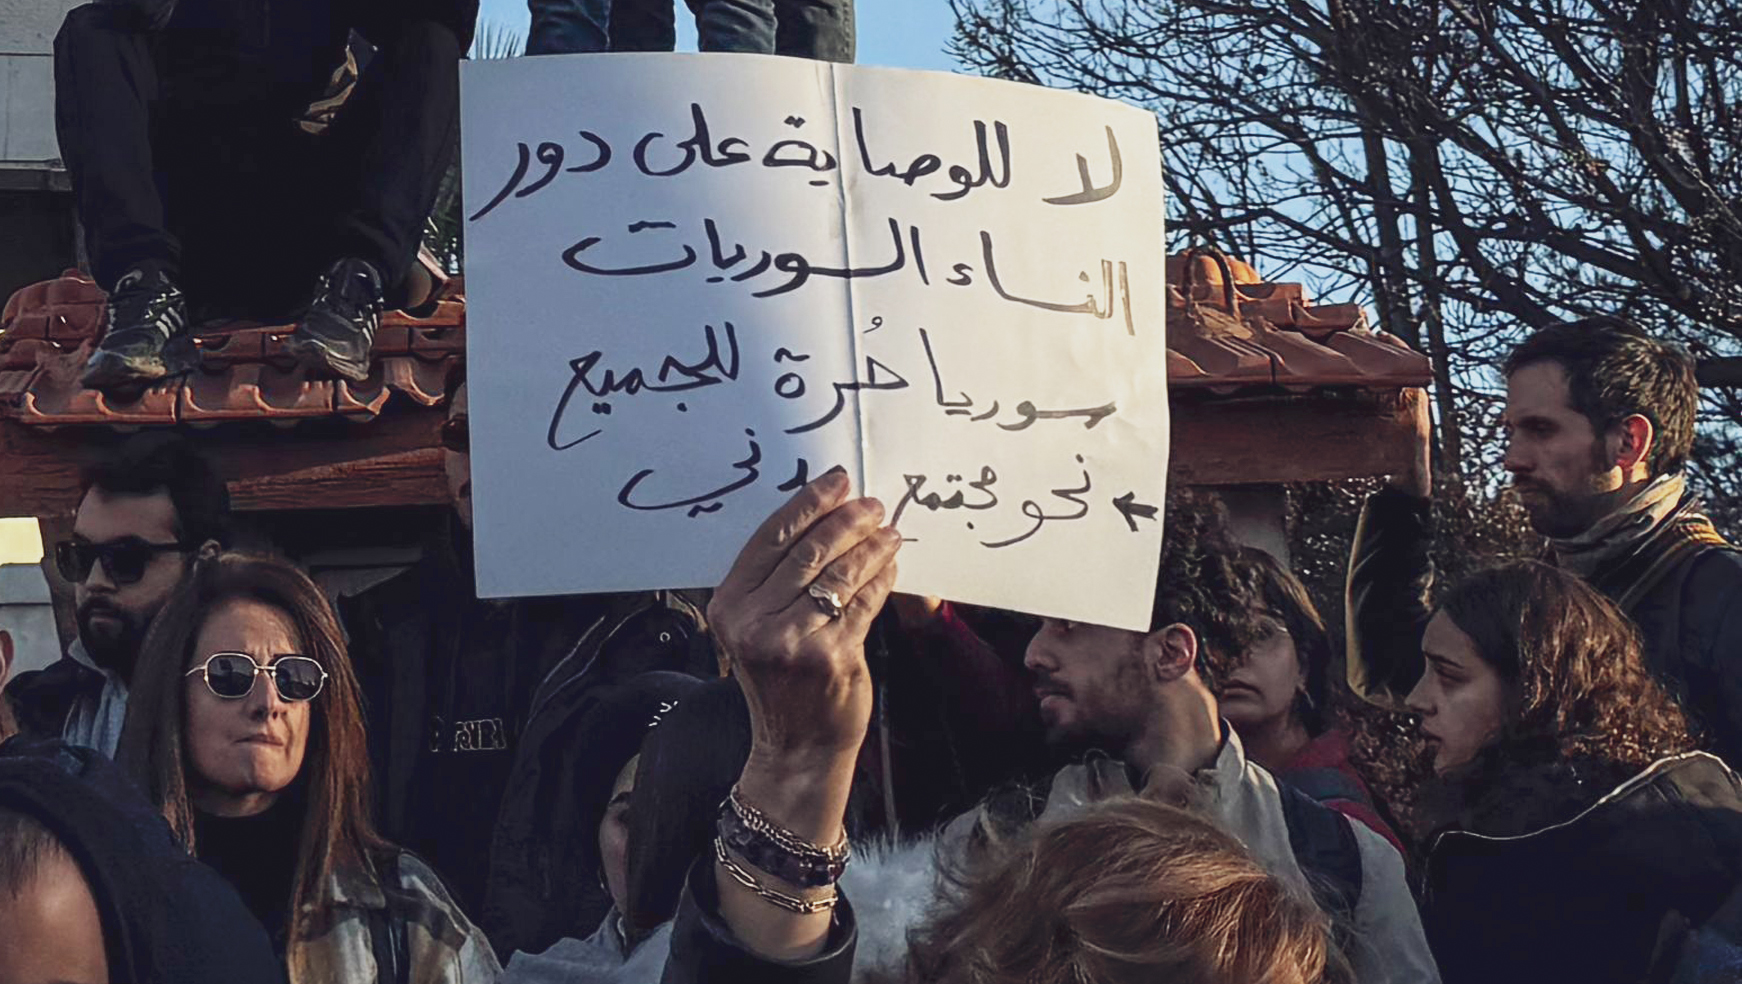 لا للوصاية على دور
النساء السوريات
سوريا حُرة للجميع
نحو مجتمع مدني